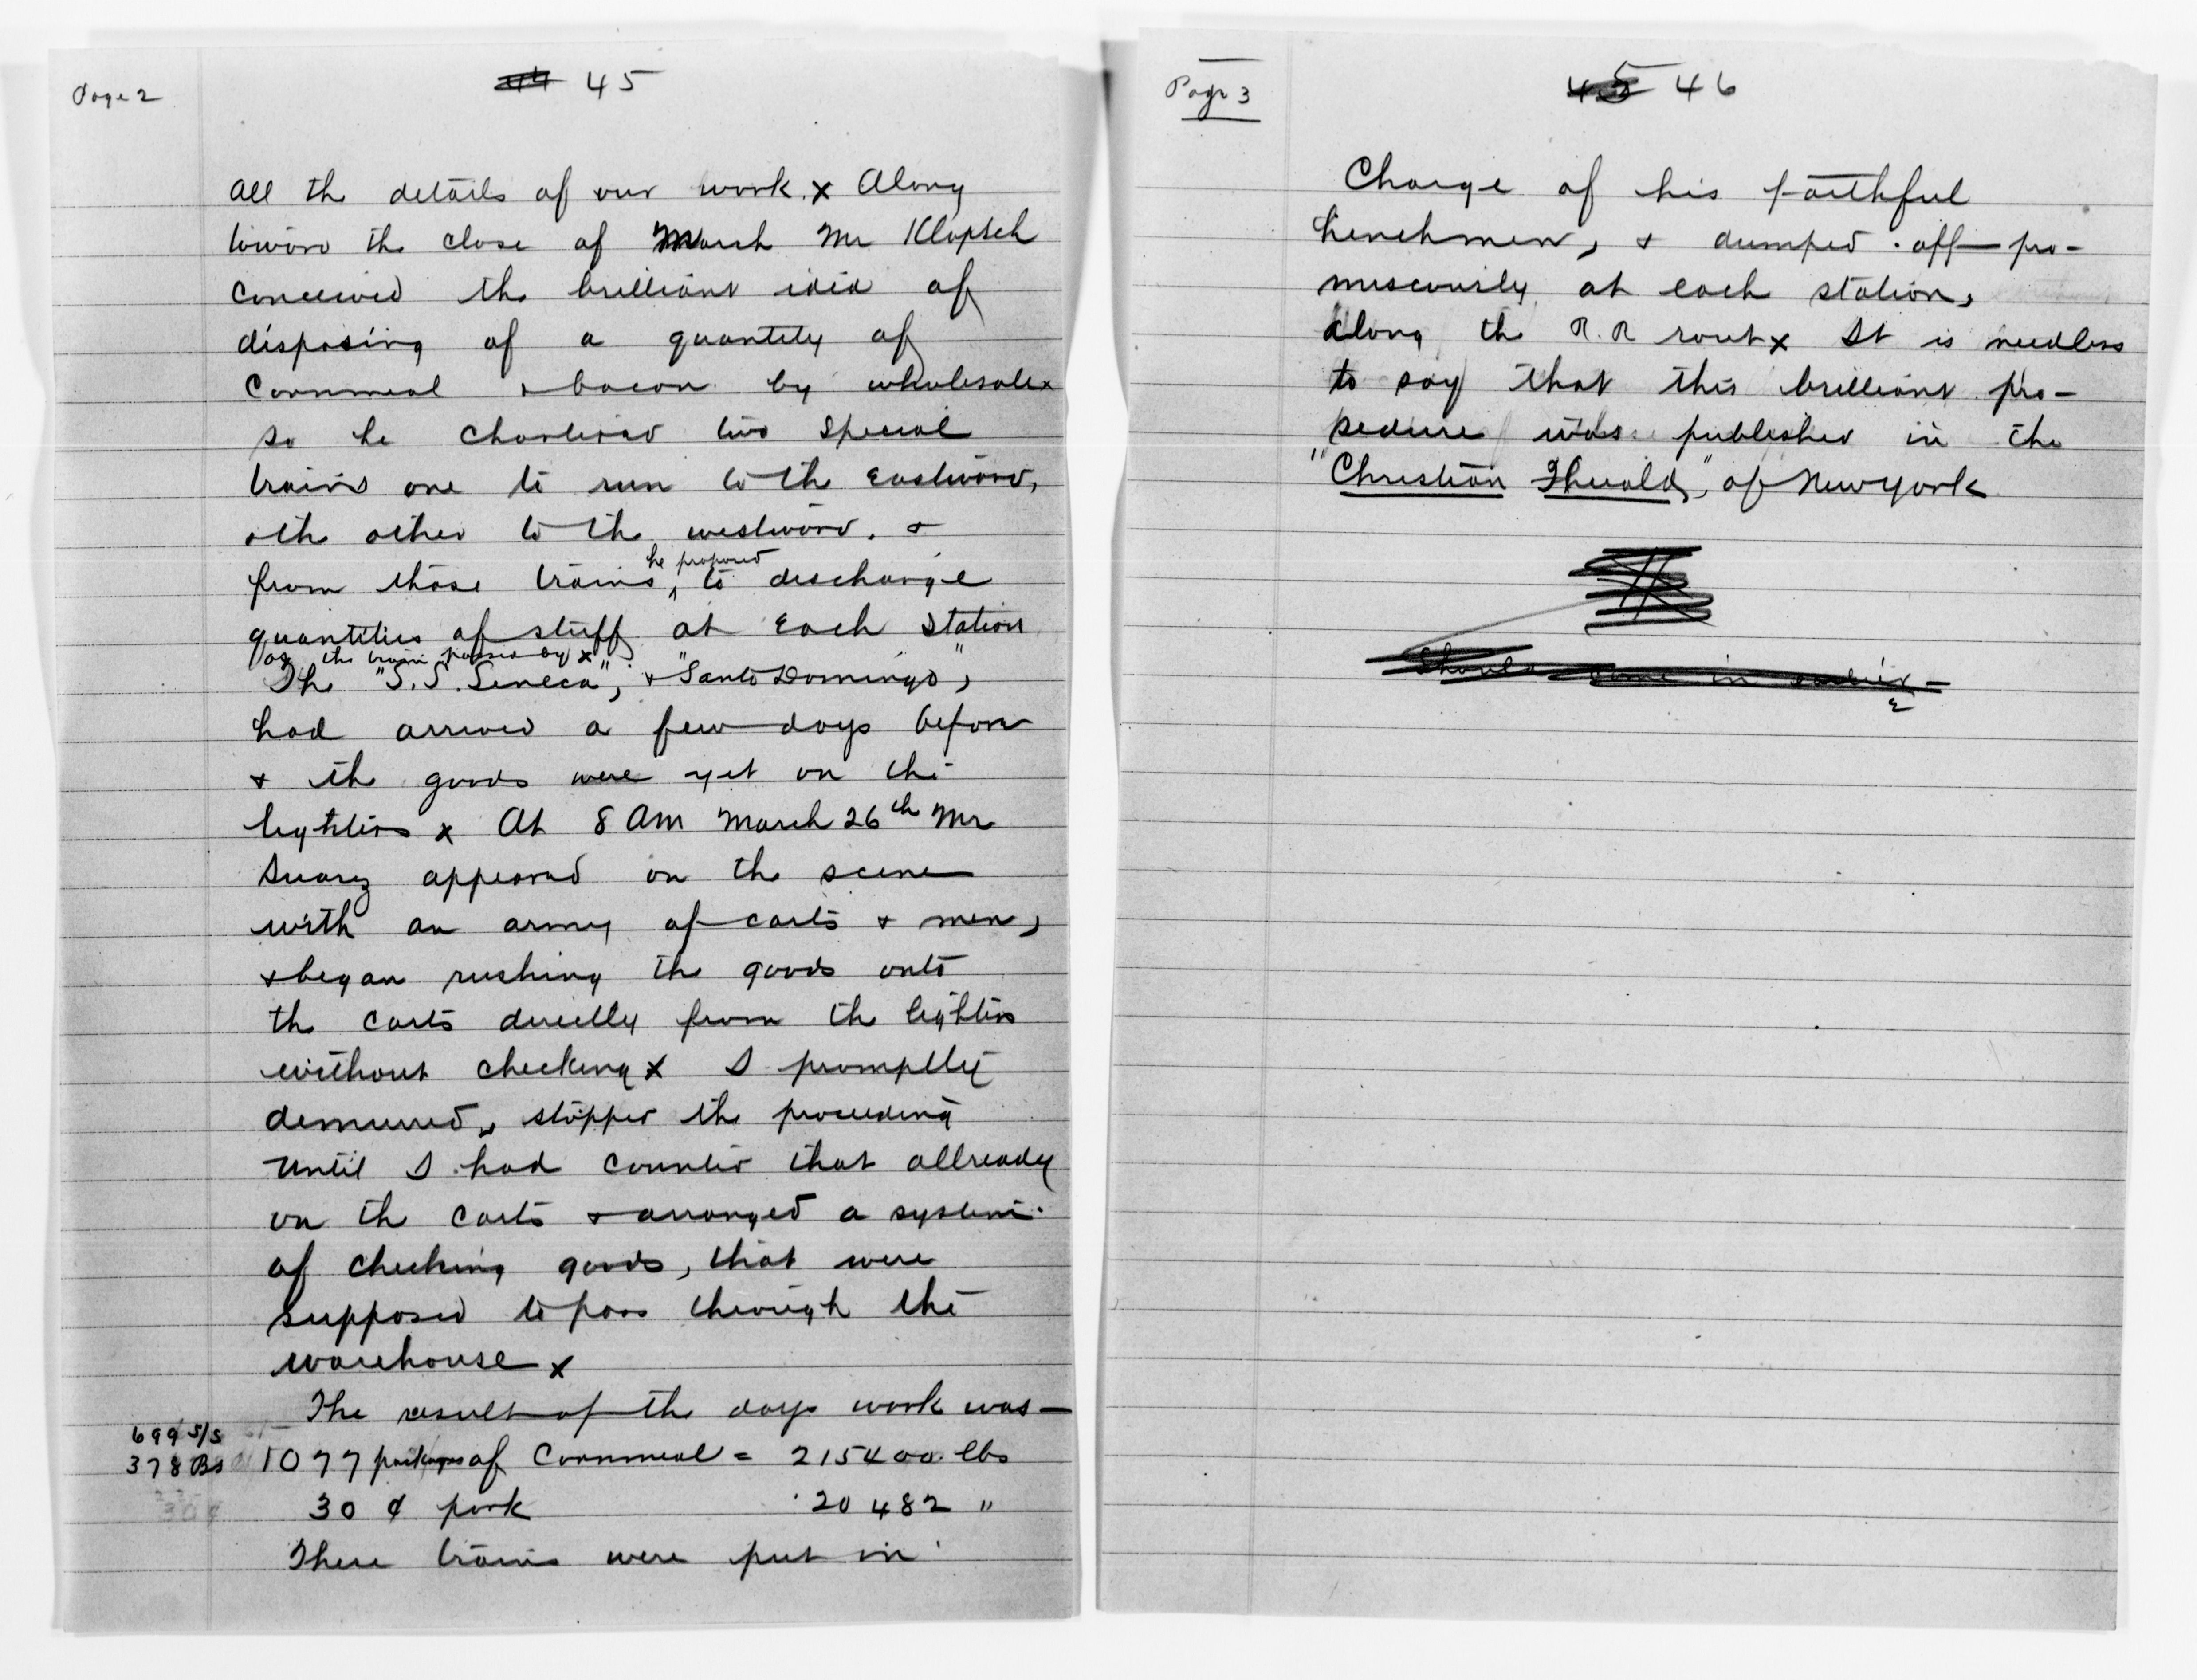 Page 2
44 45
all the details of our work. x Along
toward the close of March Mr Klopsch
conceived the brilliant idea of
disposing of a quantity of
Cornmeal & bacon by wholesale x
so he chartered two special
trains one to run to the Eastward,
& the other to the westward. &
he proposed
from those trains, ^ to discharge
quantities of stuff at each station
as the train passed by x
The "S.S. Seneca", & "Santo Domingo",
had arrived a few days before
& the goods were yet on the
lighters x At 8 AM March 26th Mr
Suarez appeared on the scene
with an army of carts & men,
& began rushing the goods onto
the carts directly from the lighters
without checking x I promptly
demurred, stopped the proceeding
until I had counted that allready
on the carts & arranged a system
of checking goods, that were
supposed to pass through the
warehouse x
The result of the days work was —
699 S/s
378 Bs 1077 packages of Cornmeal = 215400 lbs
30 ¢ pork 20482 "
These trains were put in
Page 3
45 46
Charge of his faithful
henchmen, & dumped off pro-
miscously at each station,
along the R.R rout x It is needless
to say that this brilliant pro-
sedure was published in the
"Christian Herald", of New York
Should come in earlier —